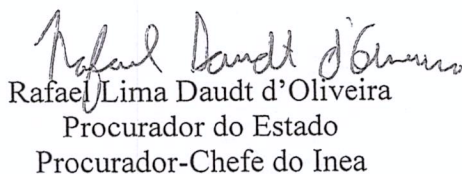 Rafael Daudt d'Oliveira
Rafael Lima Daudt d'Oliveira
Procurador do Estado
Procurador-Chefe do Inea